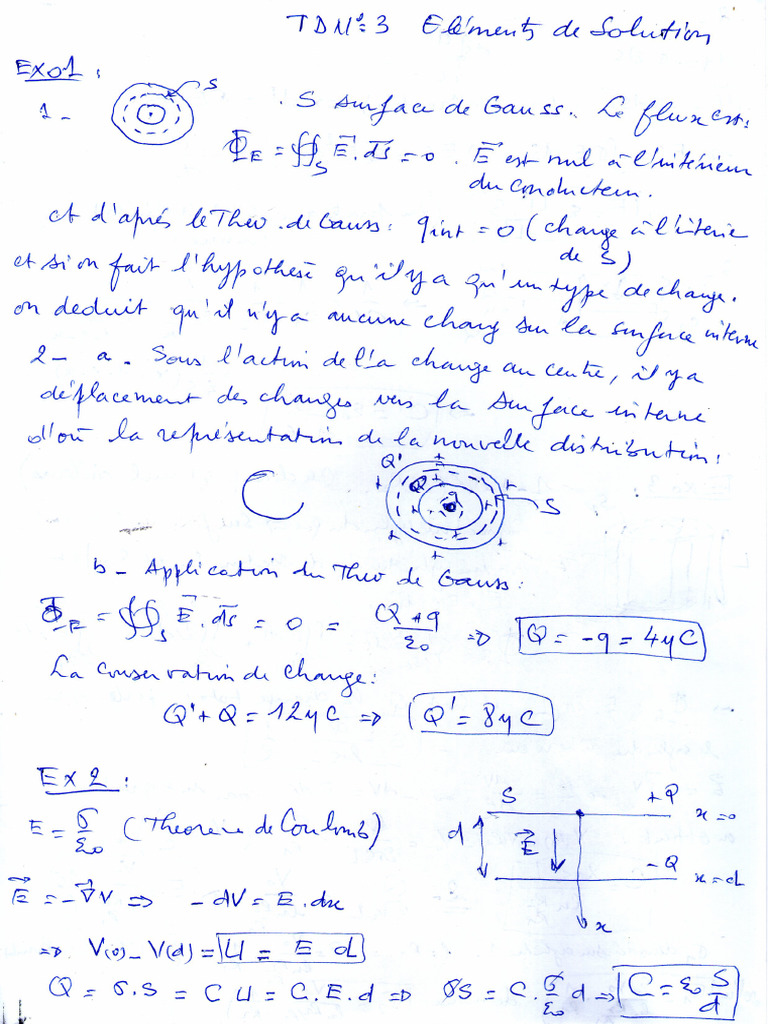 TDN°3 Eléments de Solution
Exo1 :
1- S . S surface de Gauss. Le flux est:
Φ_E = ∯_S E⃗.ds⃗ = 0 . E⃗ est nul à l'intérieur
du conducteur.
et d'aprés le Theo. de Gauss: qint = 0 (charge à l'interie
de S)
et si on fait l'hypothesè qu'il y a qu'un type de charge.
on deduit qu'il n'y a aucune charg sur la surface interne
2- a. Sous l'action de l'a charge au centre, il y a
déplacement des charges vers la surface interne
d'où la représentation de la nouvelle distribution:
Q' + Q + q + S
b- Application du Theo de Gauss:
Φ_E = ∯_S E⃗.ds⃗ = 0 = (Q+q)/ε0 => Q = -q = 4μC
La conservation de charge:
Q'+Q = 12μC => Q' = 8μC
Ex 2 :
S +Q x=0
E = σ/ε0 (Theoreme de Coulomb)
d E⃗
-Q x=d
E⃗ = -∇⃗V => -dV = E.dx
x
=> V(0) - V(d) = U = E d
Q = σ.S = C U = C.E.d => σS = C.σ/ε0 d => C = ε0 S/d